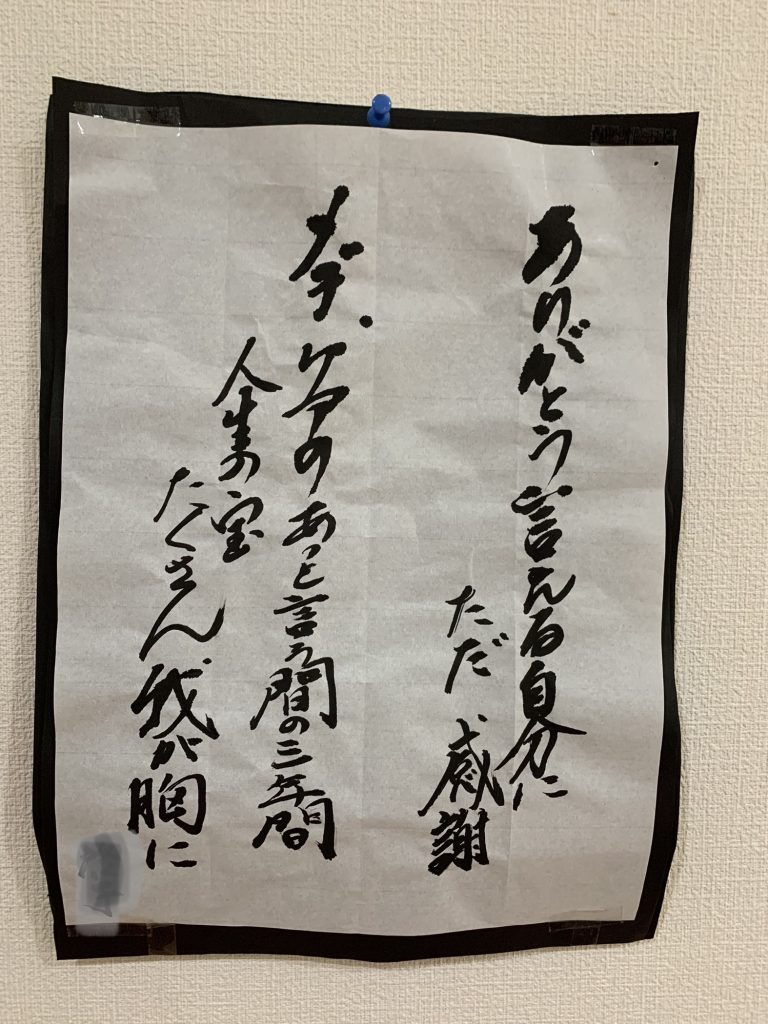 ありがとう言える自分に
ただ感謝
メデケアのあっと言う間の三年間
人生の宝
たくさん我が胸に